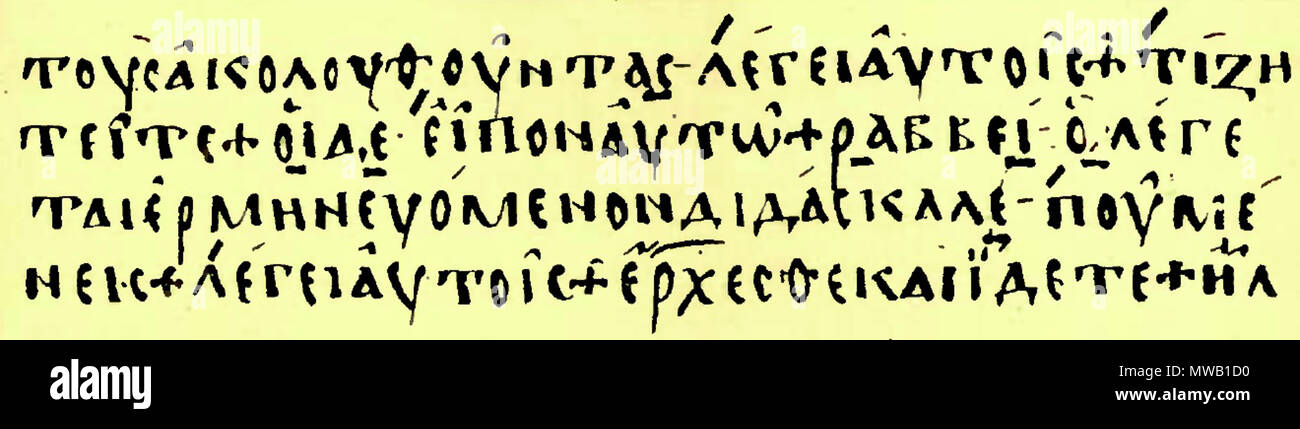 τοὺς ἀκολουθοῦντας - λέγει αὐτοῖς + τί ζη
τεῖτε + οἱ δὲ · εἶπον αὐτῷ + ραββεί · ὃ λέγε
ται ἑρμηνευόμενον διδάσκαλε - ποῦ μέ
νεις + λέγει αὐτοῖς + ἔρχεσθε καὶ ἴδετε + ἦλ
alamy
Image ID: MWB1D0
www.alamy.com